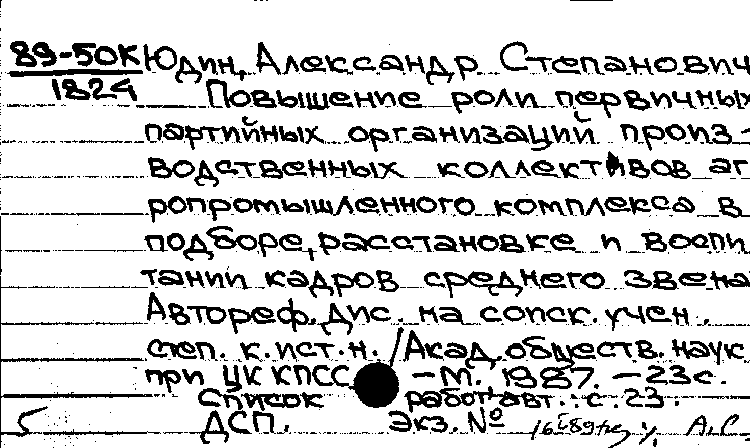 89-50К Юдин, Александр Степанович
1824 Повышение роли первичных
партийных организаций произ-
водственных коллективов аг
ропромышленного комплекса в
подборе, расстановке и воспи
тании кадров среднего звена
Автореф. дис. на соиск. учен.
степ. к. ист. н. / Акад. обществ. наук
при ЦК КПСС – М. 1987. – 23 с.
Список работ авт.: с. 23.
5 ДСП. Экз. №